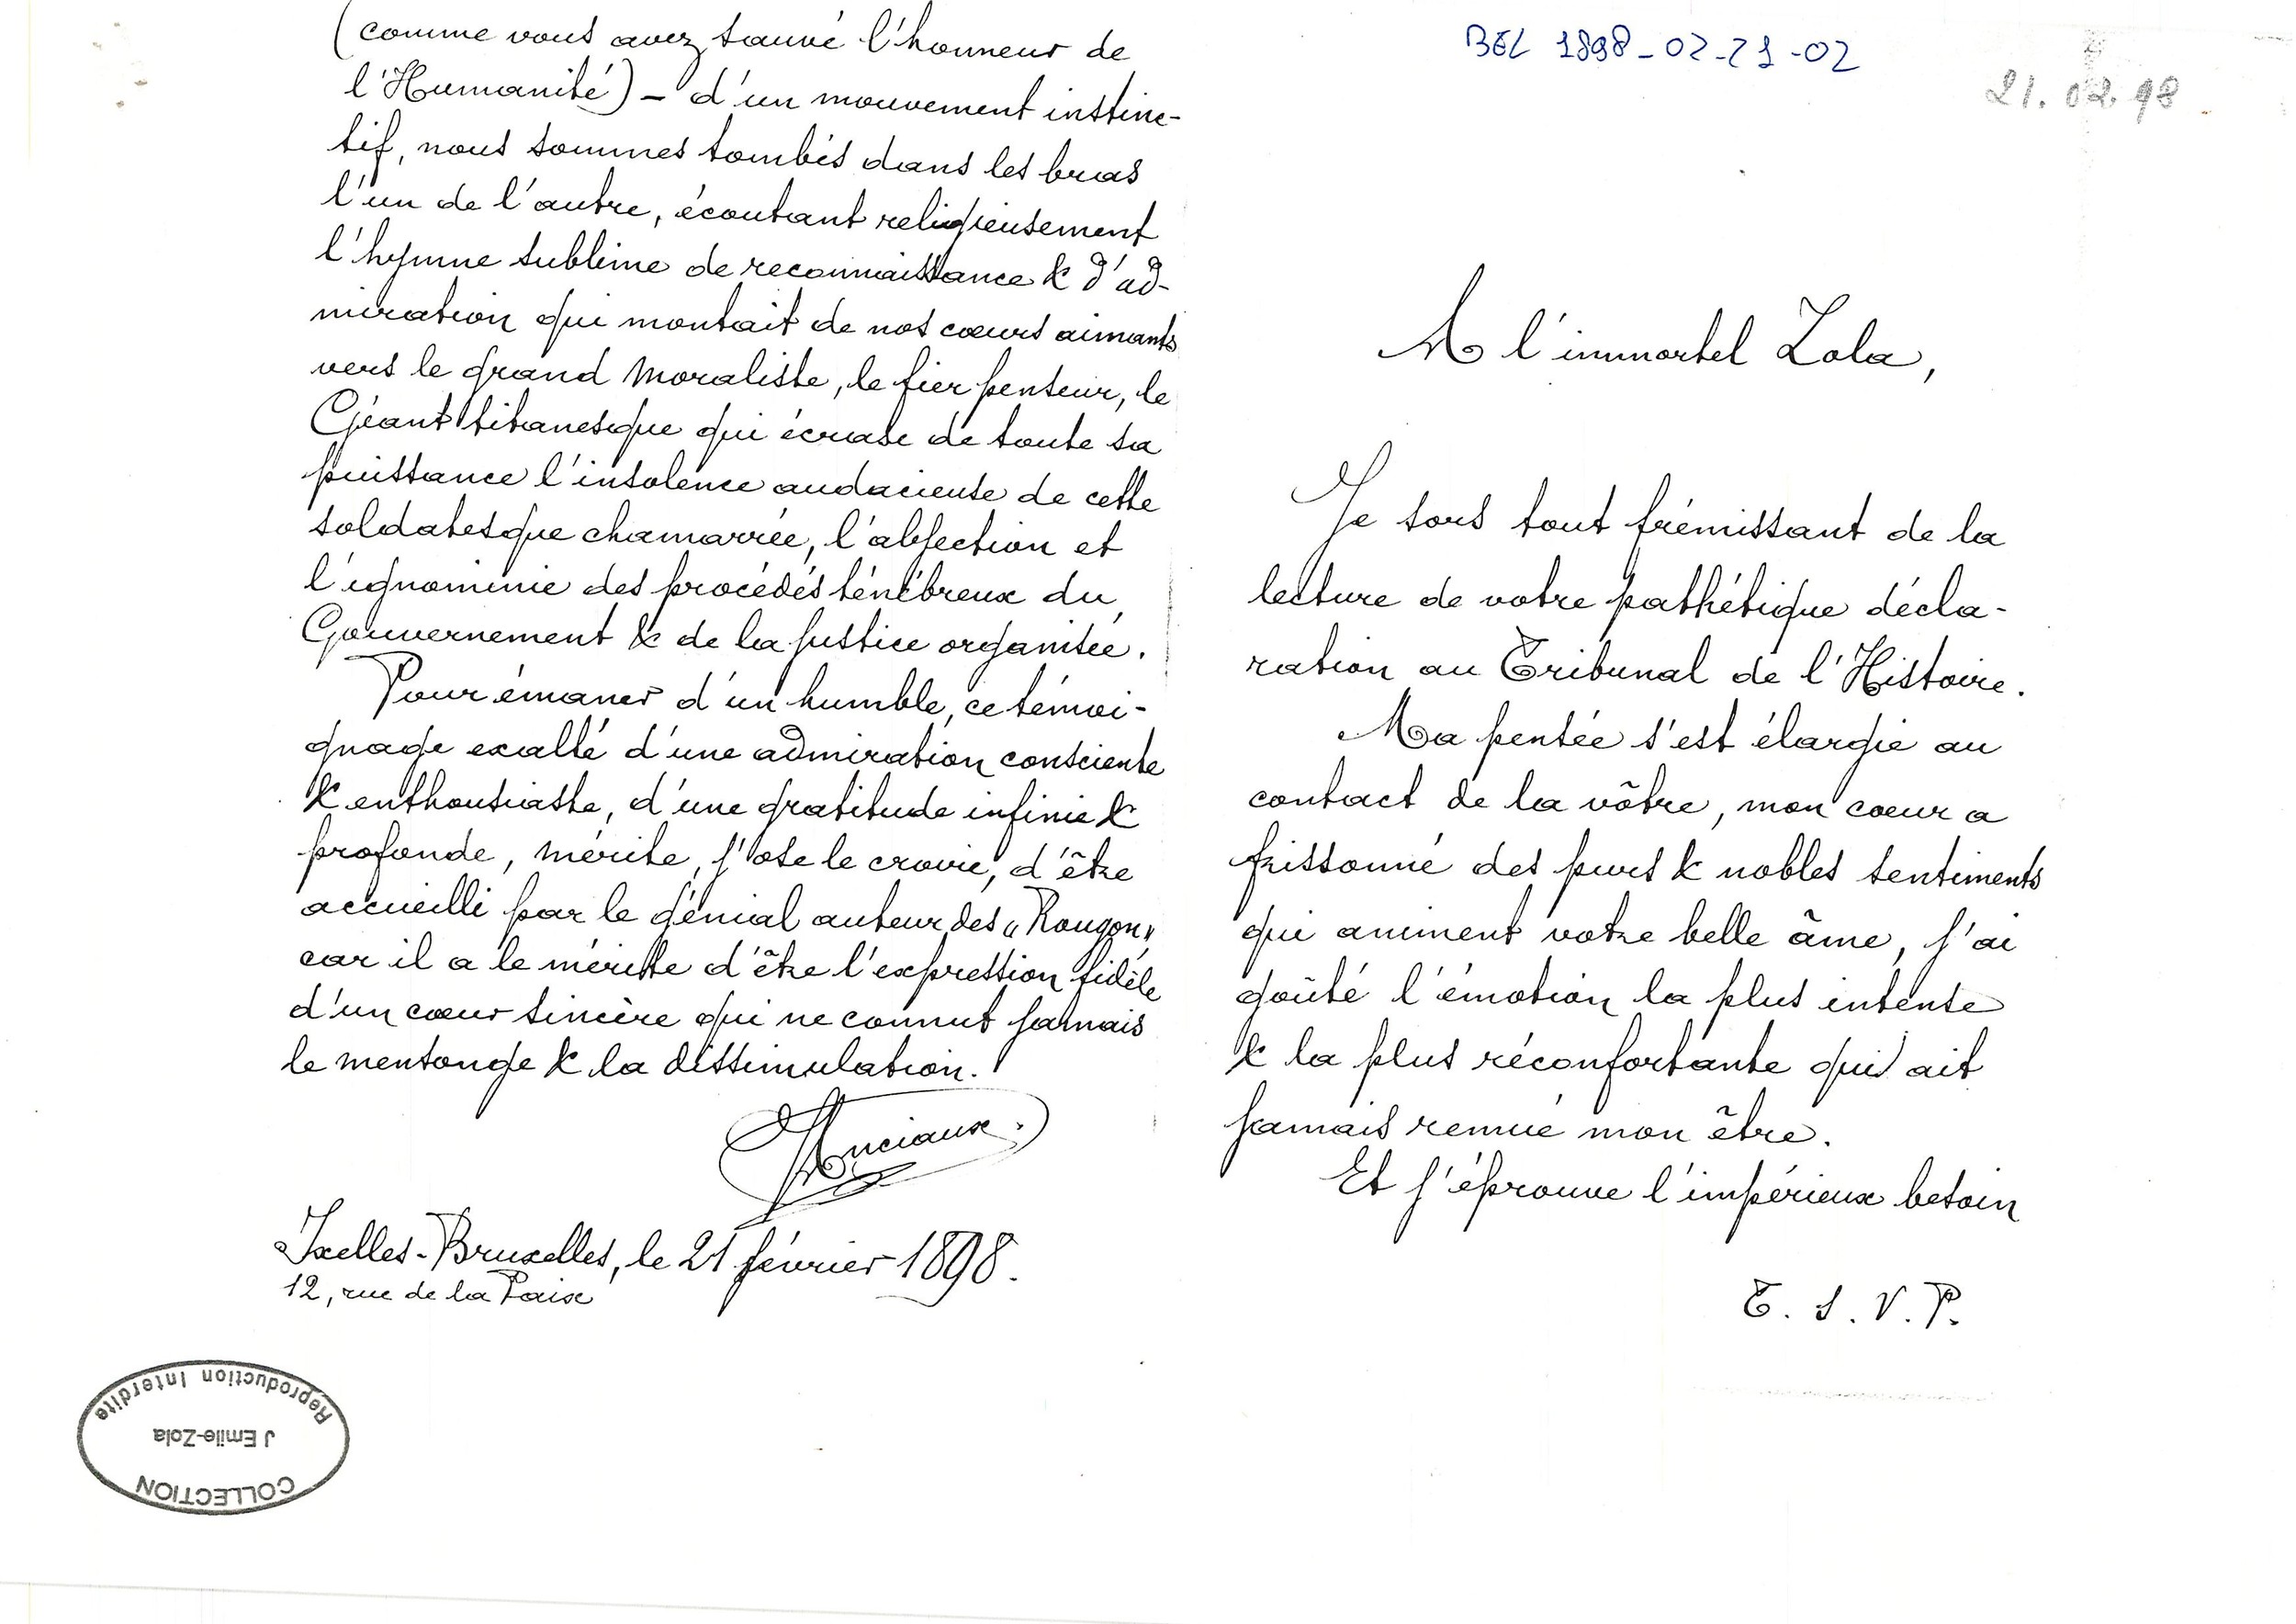 BEL 1898-02-21-02
21.02.98
A l'immortel Zola,
Je sors tout frémissant de la
lecture de votre pathétique décla-
ration au Tribunal de l'Histoire.
Ma pensée s'est élargie au
contact de la vôtre, mon cœur a
frissonné des purs & nobles sentiments
qui animent votre belle âme, j'ai
goûté l'émotion la plus intense
& la plus réconfortante qui ait
jamais remué mon être.
Et j'éprouve l'impérieux besoin
T. S. V. P.
(comme vous avez sauvé l'honneur de
l'Humanité) – d'un mouvement instinc-
tif, nous sommes tombés dans les bras
l'un de l'autre, écoutant religieusement
l'hymne sublime de reconnaissance & d'ad-
miration qui montait de nos cœurs aimants
vers le grand Moraliste, le fier penseur, le
Géant titanesque qui écrase de toute sa
puissance l'insolence audacieuse de cette
soldatesque chamarrée, l'abjection et
l'ignominie des procédés ténébreux du
Gouvernement & de la justice organisée.
Pour émaner d'un humble, ce témoi-
gnage exalté d'une admiration consciente
& enthousiaste, d'une gratitude infinie &
profonde, mérite, j'ose le croire, d'être
accueilli par le génial auteur des "Rougon"
car il a le mérite d'être l'expression fidèle
d'un cœur sincère qui ne connut jamais
le mensonge & la dissimulation.
Ixelles-Bruxelles, le 21 février 1898.
12, rue de la Paix
COLLECTION
J Emile-Zola
Reproduction Interdite